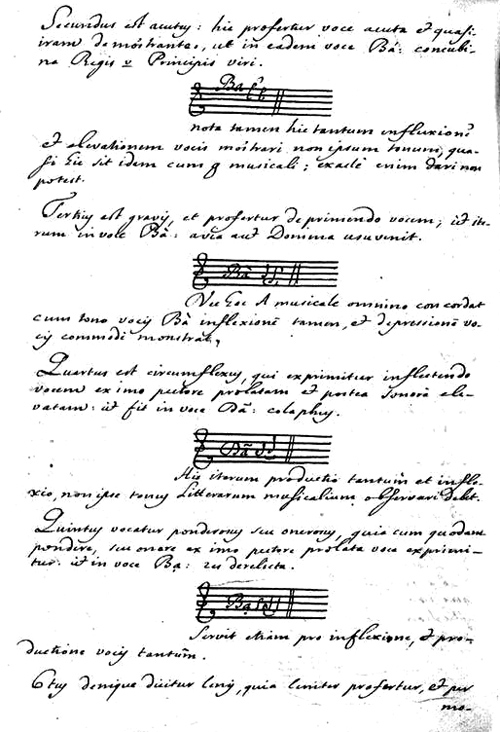 Secundus est acutus: hic profertur voce acuta et quasi
iram demonstrante, ut in eadem voce Bá: concubi-
na Regis v Principis viri.
Bá
nota tamen hic tantum inflexionē
et elevationem vocis mostrari non ipsum tonum, qua-
si hic sit idem cum g musicali; exacte enim dari non
potest.
Tertius est gravis, et profertur deprimendo vocem; ut ite-
rum in voce Bà: avia aut Domina usuvenit.
Bà
Nec hoc A musicale omnino concordat
cum tono vocis Bà inflexionē tamen, et depressionē vo-
cis commode monstrat,
Quartus est circumflexus, qui exprimitur inflectendo
vocem ex imo pectore prolatam et postea sonorā ele-
vatam: ut fit in voce Bã: colaphus.
Bã
Hic iterum productio tantum et infle-
xio, non ipse tonus Litterarum musicalium observari debet.
Quintus vocatur ponderosus seu onerosus, quia cum quodam
pondere, seu onere ex imo pectore prolata voce exprimi-
tur: ut in voce Bạ: res derelicta.
Bạ
Servit etiam pro inflexione, et pro-
ductione vocis tantum.
6tus denique dicitur lenis, quia leniter profertur, et per
mo-